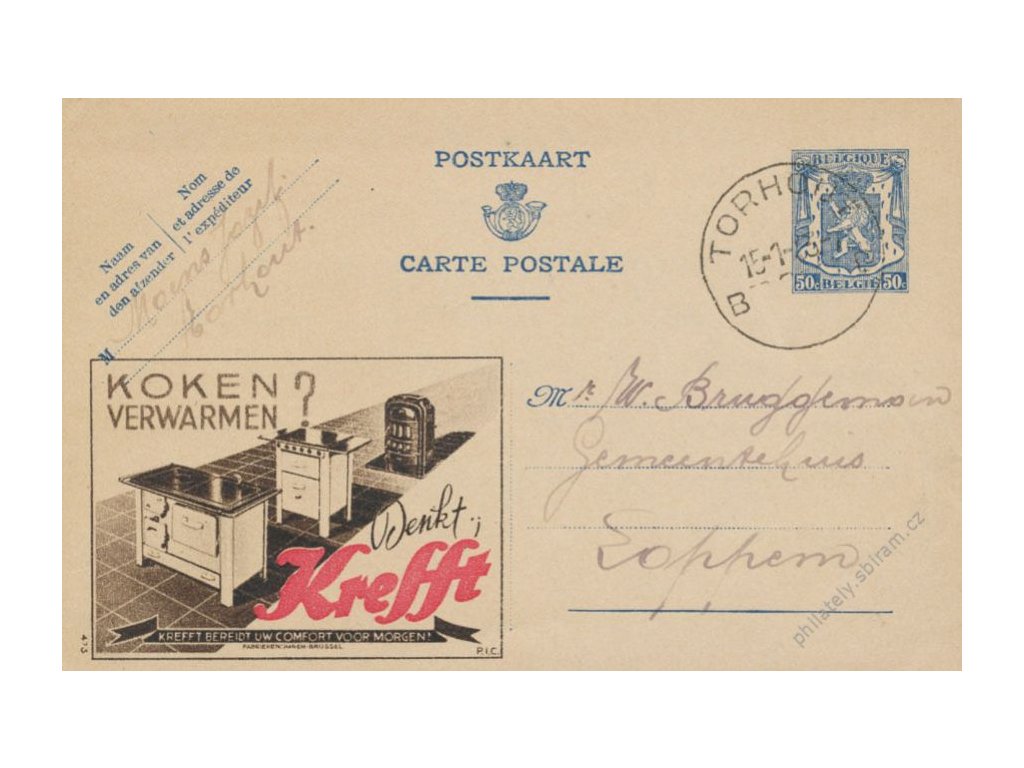 POSTKAART
CARTE POSTALE
Nom
et adresse de
l'expéditeur
Naam
en adres van
den afzender
M
Torhout.
BELGIQUE
50c BELGIË 50c
TORHO
15-1-
B
KOKEN
VERWARMEN ?
Denkt
Krefft
KREFFT BEREIDT UW COMFORT VOOR MORGEN!
FABRIEKEN: HAREN-BRUSSEL
P.I.C.
475
Mr. W. Bruggeman
Gemeentehuis
Loppem
philately.sbiram.cz